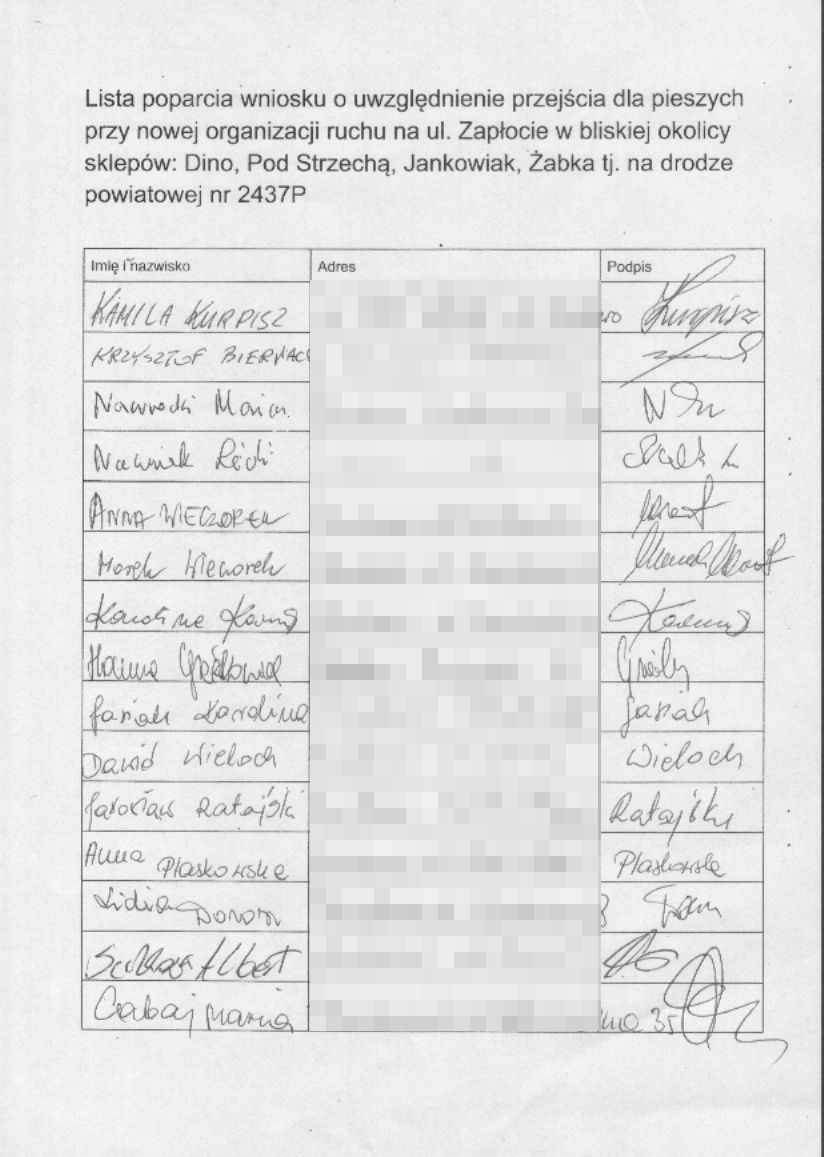 Lista poparcia wniosku o uwzględnienie przejścia dla pieszych
przy nowej organizacji ruchu na ul. Zapłocie w bliskiej okolicy
sklepów: Dino, Pod Strzechą, Jankowiak, Żabka tj. na drodze
powiatowej nr 2437P
Imię i nazwisko Adres Podpis
KAMILA KURPISZ Kurpisz
KRZYSZTOF BIERNAC
Nawrocki
ANNA WIECZOREK
Marek Wieczorek
Karolina
Hanna
Jasiak Karolina Jasiak
Dawid Wieloch Wieloch
Jarosław Ratajski Ratajski
Anna Płaskowska Płaskowska
Lidia
Albert
Cabaj Maria 35